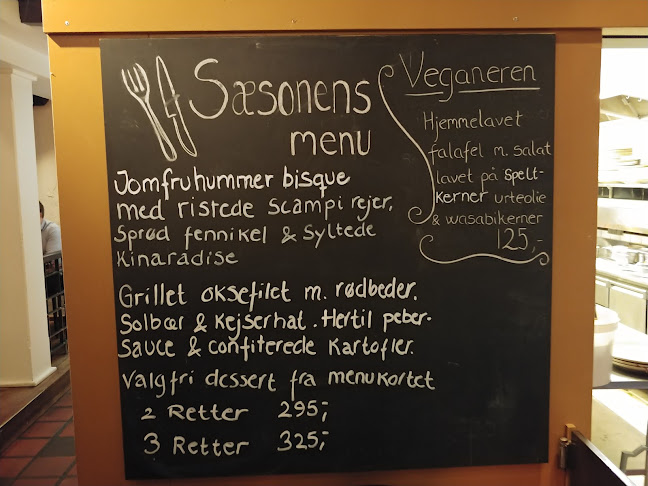 Sæsonens
menu
Jomfruhummer bisque
med ristede scampi rejer,
Sprød fennikel & Syltede
Kinaradise
Grillet oksefilet m. rødbeder,
Solbær & kejserhat. Hertil peber-
sauce & confiterede kartofler.
Valgfri dessert fra menukortet
2 Retter 295,-
3 Retter 325,-
Veganeren
Hjemmelavet
falafel m. salat
lavet på spelt-
kerner urteolie
& wasabikerner
125,-